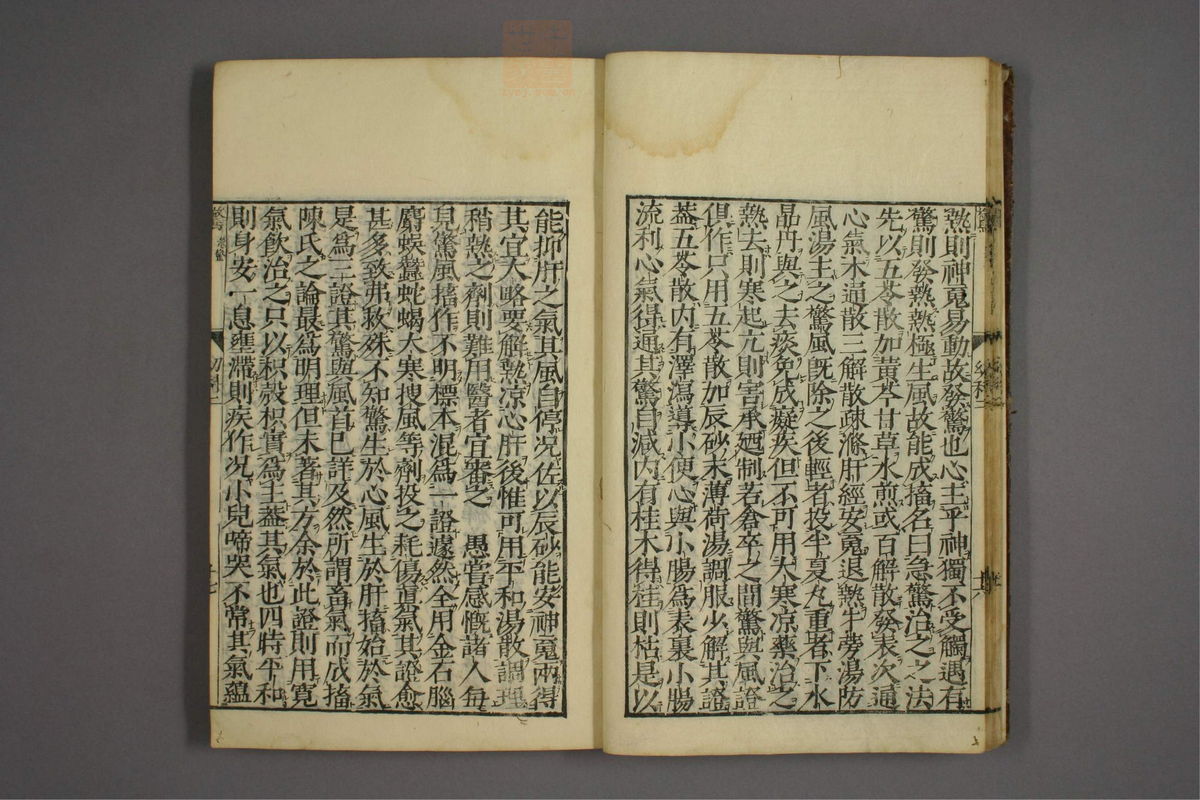 熱則神䰟易動故發驚也心主乎神獨不受觸遇有
驚則發熱熱極生風故能成搐名曰急驚治之之法
先以五苓散加黃芩甘草水煎或百解散發表次通
心氣木通散三解散疎滌肝經安䰟退熱牛蒡湯防
風湯主之驚風旣除之後輕者投半夏丸重者下水
晶丹與之去痰免成癡疾但不可用大寒凉藥治之
熱去則寒起亢則害承廼制若倉卒之間驚與風證
俱作只用五苓散加辰砂末薄荷湯調服少解其證
葢五苓散內有澤瀉導小便心與小腸為表裏小腸
流利心氣得通其驚自減內有桂木得桂則枯是以
能抑肝之氣其風自停况佐以辰砂能安神䰟兩得
其宜大略要解熱凉心肝後惟可用平和湯散調理
稍熱之劑則難用醫者宜審之　愚嘗感慨諸人每
見驚風搐作不明標本混爲一證遽然全用金石腦
麝蜈蠶蛇蝎大寒搜風等劑投之耗傷眞氣其證愈
甚多致弗救殊不知驚生於心風生於肝搐始於氣
是爲三證其驚與風首已詳及然所謂畜氣而成搐
陳氏之論最爲明理但未著其方余於此證則用寬
氣飲治之只以枳殻枳實爲主葢其氣也四時平和
則身安一息壅滯則疾作况小兒啼哭不常其氣蘊
幼科